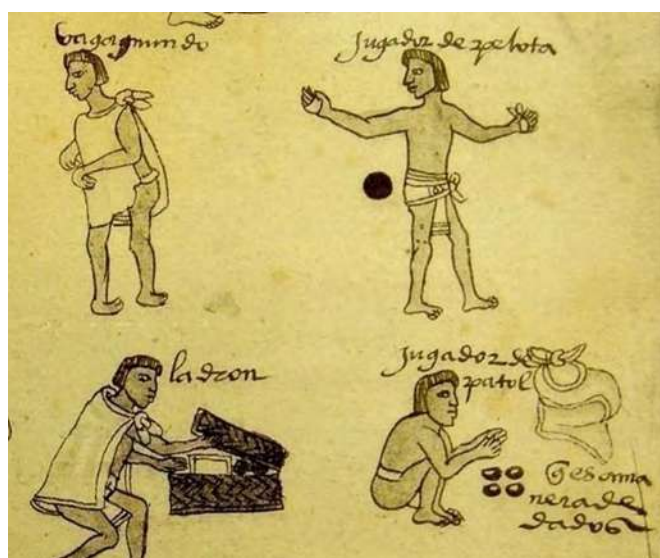 bagamundo
Jugador de pelota
ladron
Jugador de
patol
q̃ es ama
nera de
dados